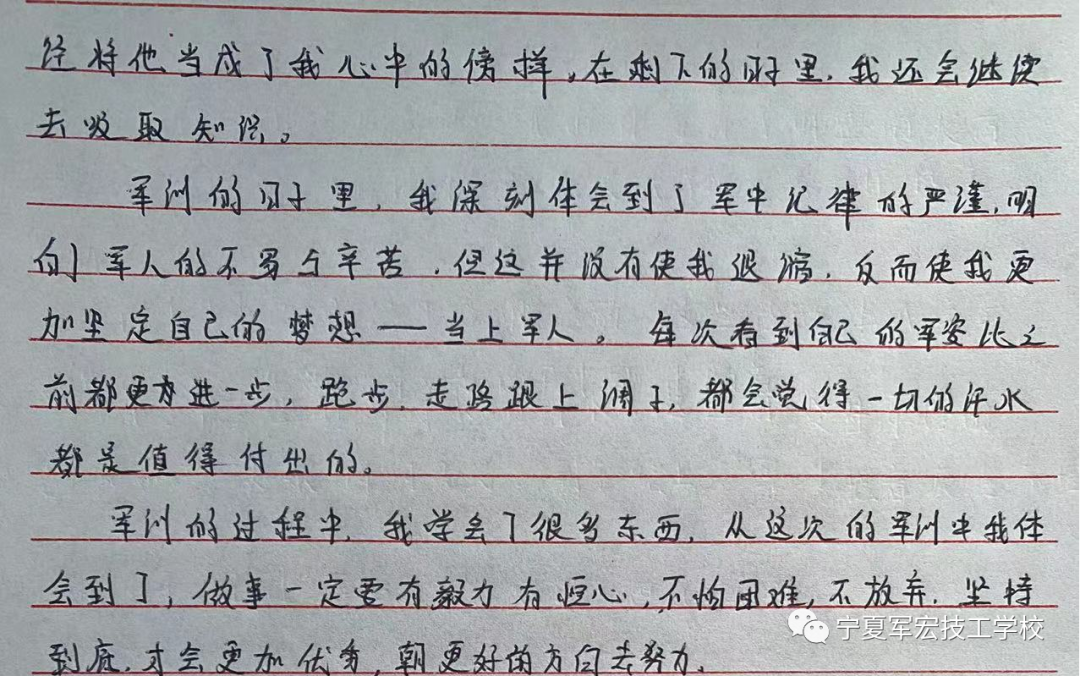 经将他当成了我心中的傍样。在剩下的日子里，我还会继续
去吸取知识。
军训的日子里，我深刻体会到了军中纪律的严谨，明
白军人的不易与辛苦，但这并没有使我退缩，反而使我更
加坚定自己的梦想——当上军人。每次看到自己的军姿比之
前都更为进一步，跑步，走路跟上调子，都会觉得一切的汗水
都是值得付出的。
军训的过程中，我学会了很多东西，从这次的军训中我体
会到了，做事一定要有毅力有恒心，不怕困难，不放弃，坚持
到底，才会更加优秀，朝更好的方向去努力。
宁夏军宏技工学校